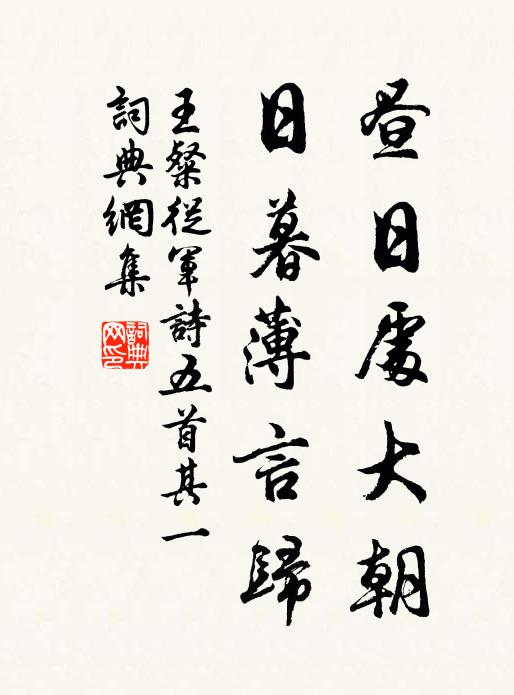 昼日處大朝
日暮薄言歸
王粲從軍詩五首其一
詞典網集
詞典网印